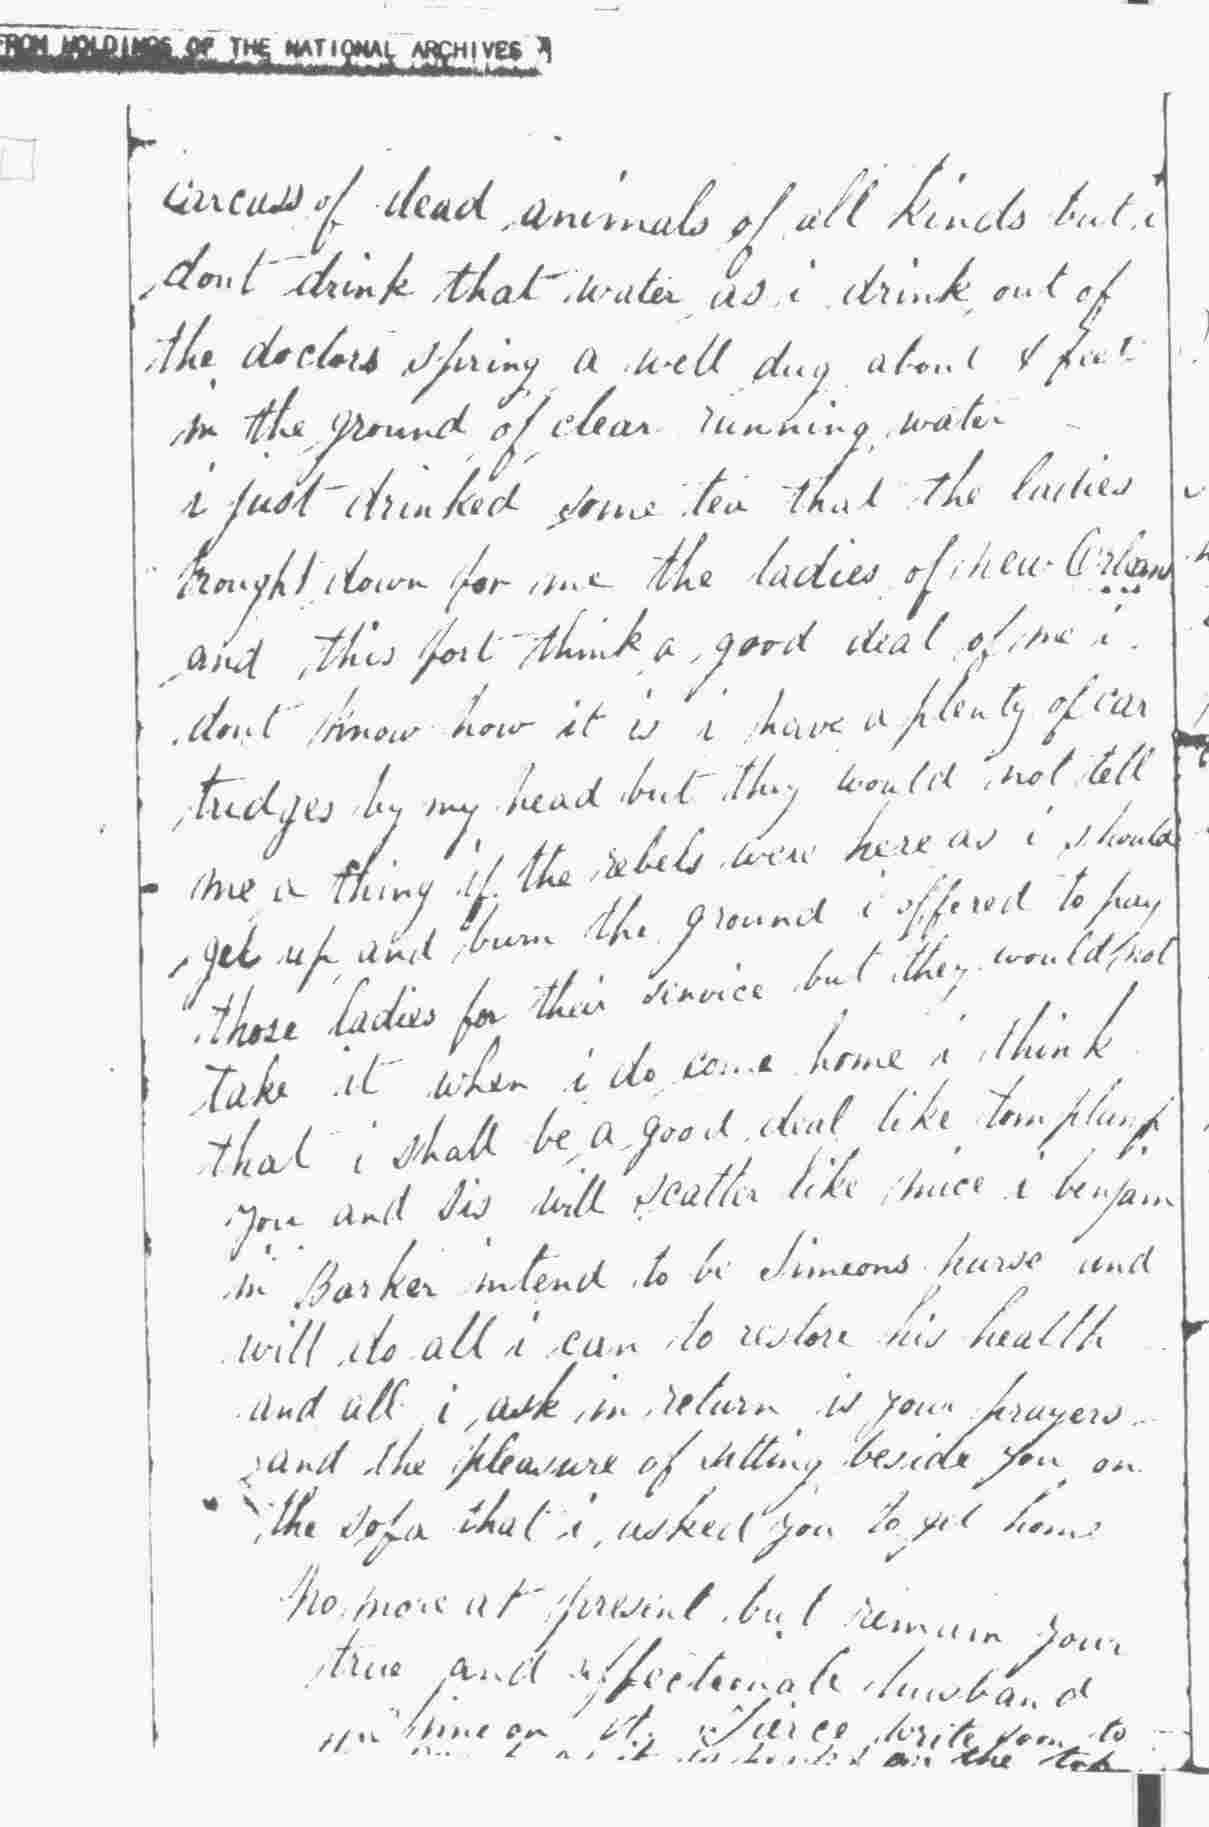 FROM HOLDINGS OF THE NATIONAL ARCHIVES
carcass of dead animals of all kinds but i
dont drink that water as i drink out of
the doctors spring a well dug about 4 feet
in the ground of clear running water
i just drinked some tea that the ladies
brought down for me the ladies of new Orleans
and this fort think a good deal of me i
dont know how it is i have a plenty of car
tridges by my head but they would not tell
me a thing if the rebels were here as i should
get up and burn the ground i offered to pay
those ladies for their service but they would not
take it when i do come home i think
that i shall be a good deal like tom plump
you and sis will scatter like mice i benjam
in Barker intend to be Simeons nurse and
will do all i can to restore his health
and all i ask in return is your prayers
and the pleasure of sitting beside you on
the sofa that i asked you to get home
no more at present but remain your
true and affectionate husband
Simeon A. Tierce write soon to
on the top